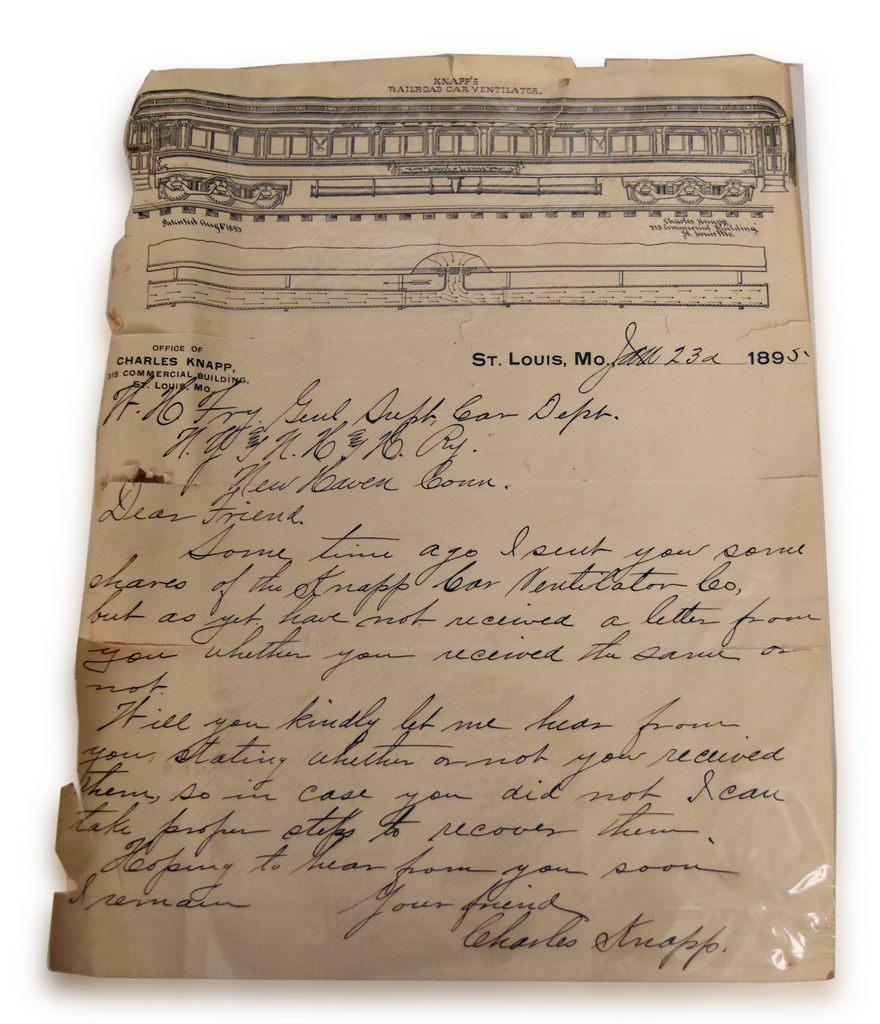 KNAPP'S
RAILROAD CAR VENTILATOR.
Patented Aug 8 1893
Charles Knapp
315 Commercial Building,
St. Louis Mo.
OFFICE OF
CHARLES KNAPP,
315 COMMERCIAL BUILDING,
ST. LOUIS, MO.
ST. LOUIS, MO. Jan 23d 1895.
Fry Genl Supt. Car Dept.
N. Y. & N. H. & H. Ry.
New Haven Conn.
Dear Friend.
Some time ago I sent you some
shares of the Knapp Car Ventilator Co,
but as yet have not received a letter from
you whether you received the same or
not.
Will you kindly let me hear from
you, stating whether or not you received
them, so in case you did not I can
take proper steps to recover them.
Hoping to hear from you soon
I remain Your friend
Charles Knapp.